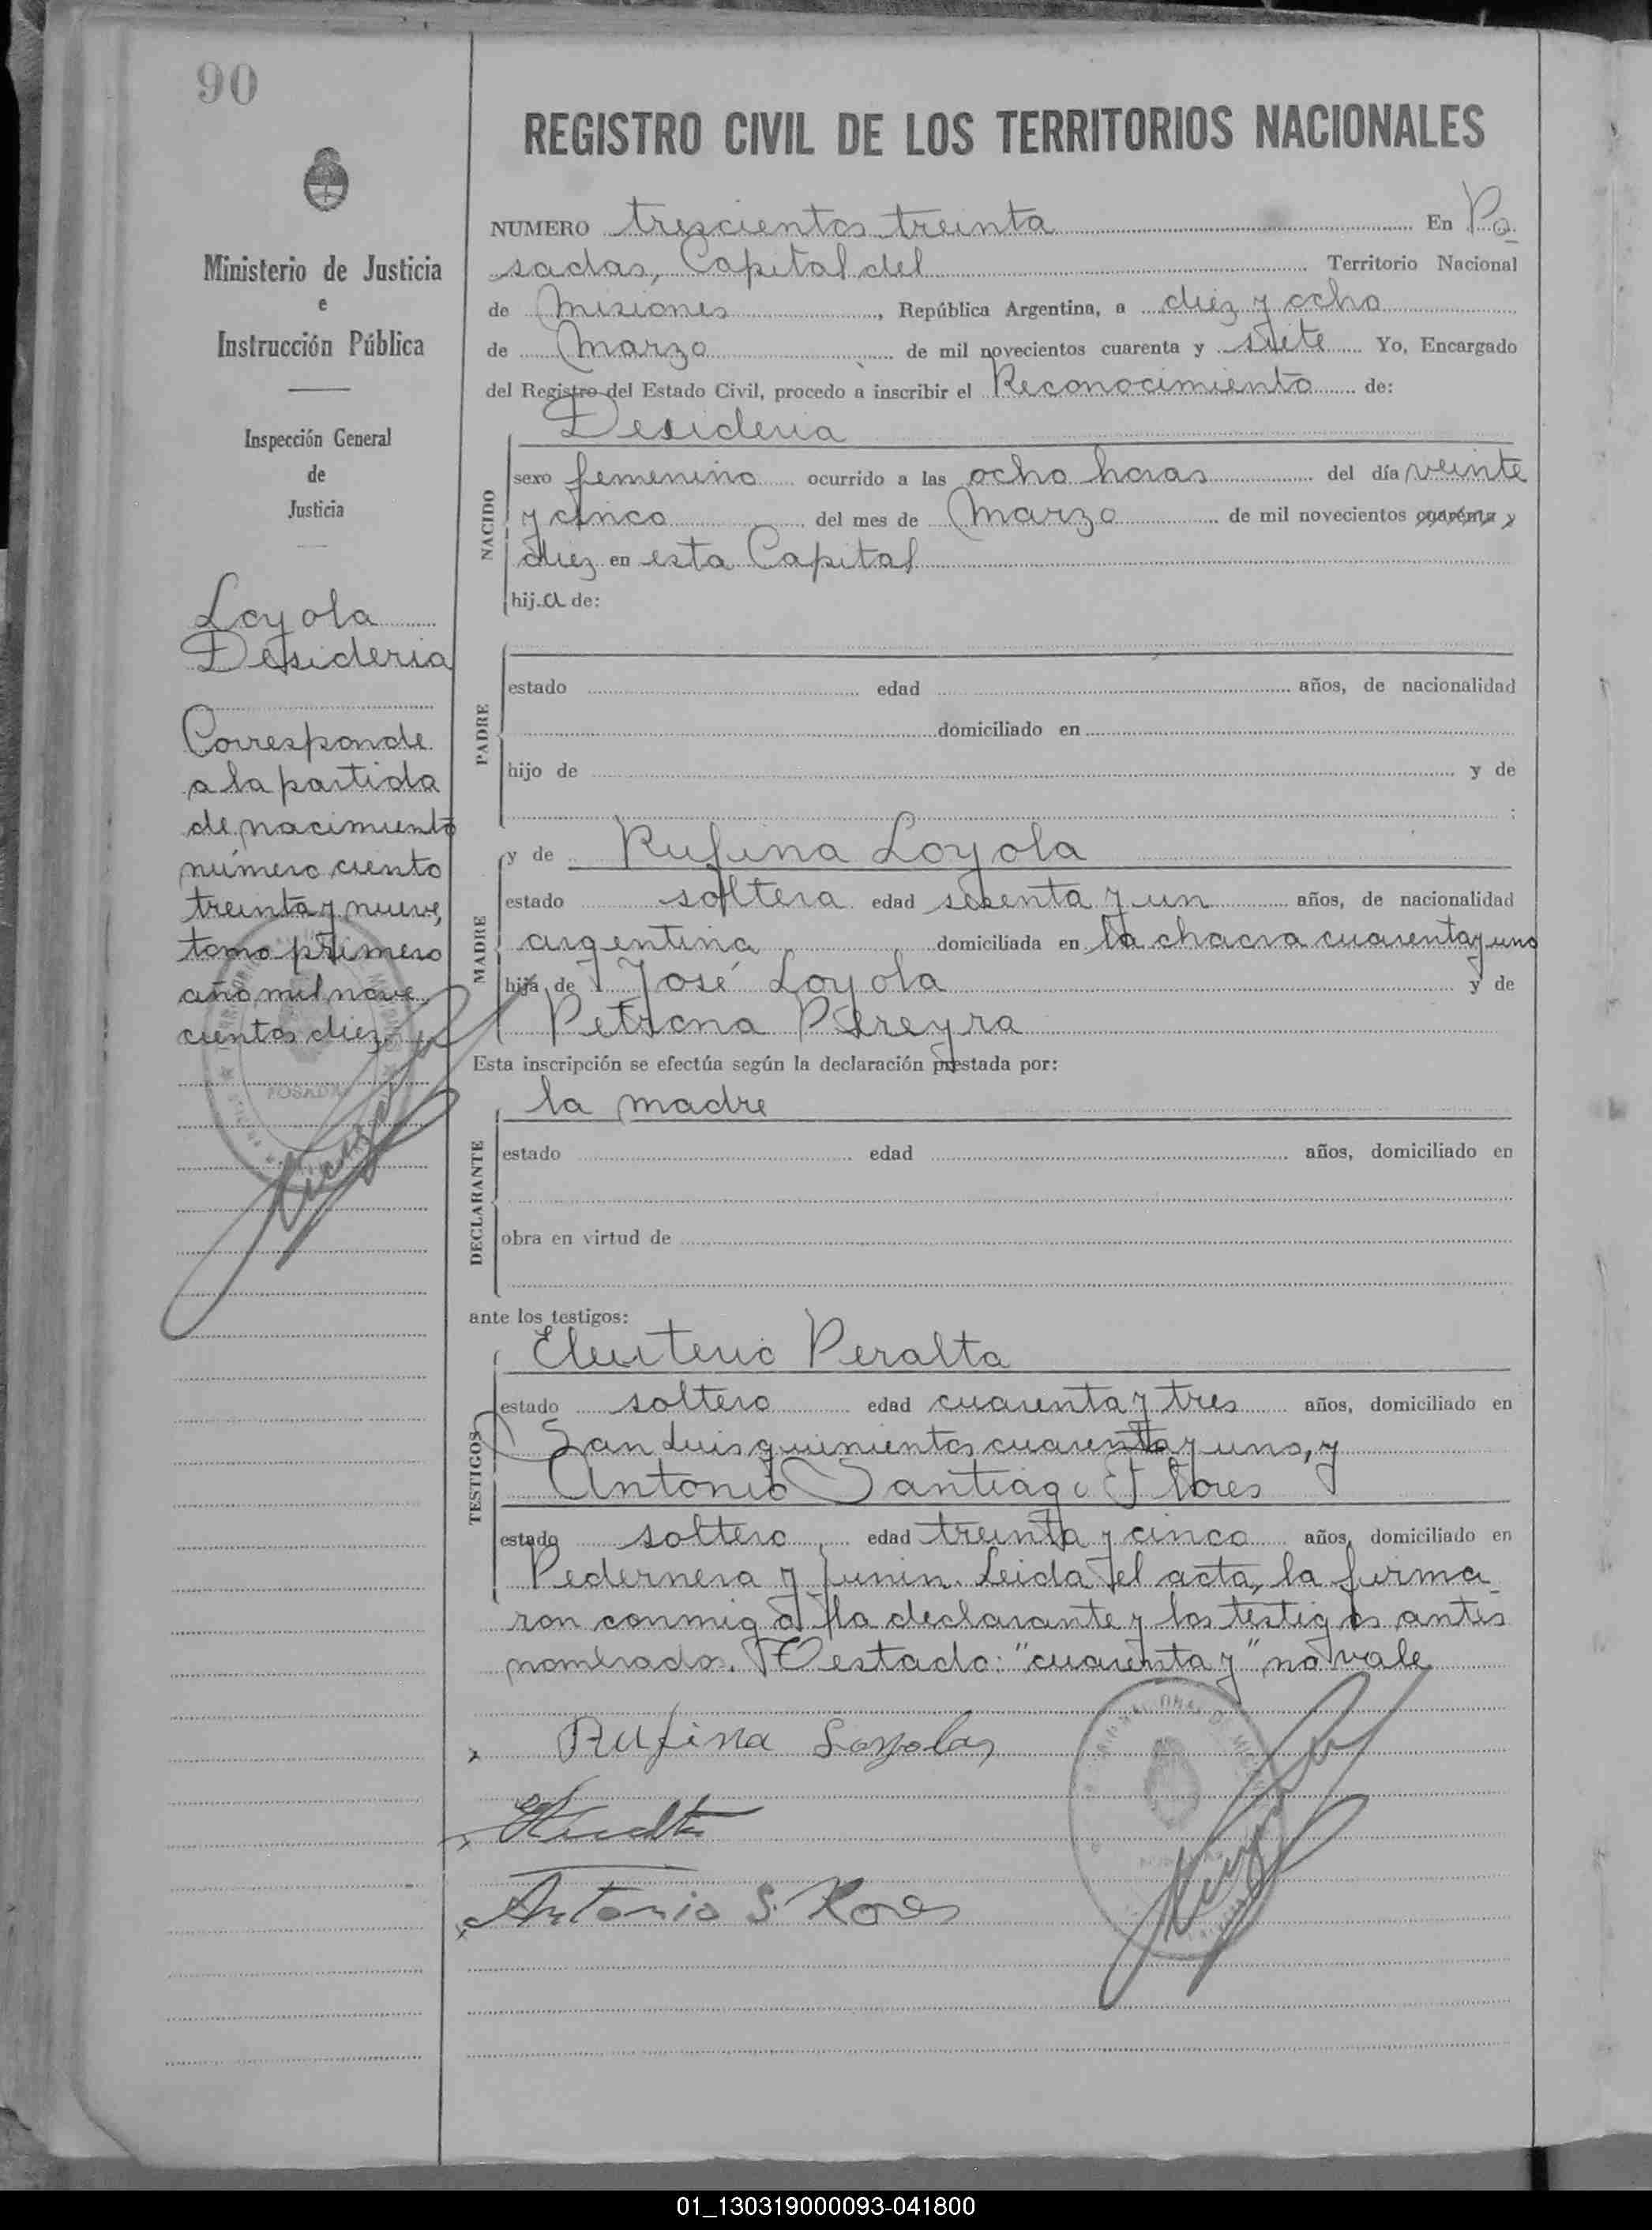 90
Ministerio de Justicia
e
Instrucción Pública
Inspección General
de
Justicia
Loyola
Desideria
Corresponde
a la partida
de nacimiento
número ciento
treinta y nueve,
tomo primero
año mil nove
cientos diez.
POSADAS
REGISTRO CIVIL DE LOS TERRITORIOS NACIONALES
NUMERO trescientos treinta En Po-
sadas, Capital del Territorio Nacional
de Misiones, República Argentina, a diez y ocho
de Marzo de mil novecientos cuarenta y siete Yo, Encargado
del Registro del Estado Civil, procedo a inscribir el Reconocimiento de:
Desideria
NACIDO
sexo femenino ocurrido a las ocho horas del día veinte
y cinco del mes de Marzo de mil novecientos cuarenta y
diez en esta Capital
hija de:
PADRE
estado edad años, de nacionalidad
domiciliado en
hijo de y de
;
MADRE
y de Rufina Loyola
estado soltera edad sesenta y un años, de nacionalidad
argentina domiciliada en la chacra cuarenta y uno
hija de José Loyola y de
Petrona Pereyra
Esta inscripción se efectúa según la declaración prestada por:
DECLARANTE
la madre
estado edad años, domiciliado en
obra en virtud de
ante los testigos:
TESTIGOS
Eleuterio Peralta
estado soltero edad cuarenta y tres años, domiciliado en
San Luis quinientos cuarenta y uno, y
Antonio Santiago Flores
estado soltero edad treinta y cinco años, domiciliado en
Pedernera y Junin. Leida el acta, la firma-
ron conmigo la declarante y los testigos antes
nombrados. Testado: "cuarenta y" no vale
Rufina Loyola
EPeralta
Antonio S. Flores
01_130319000093-041800